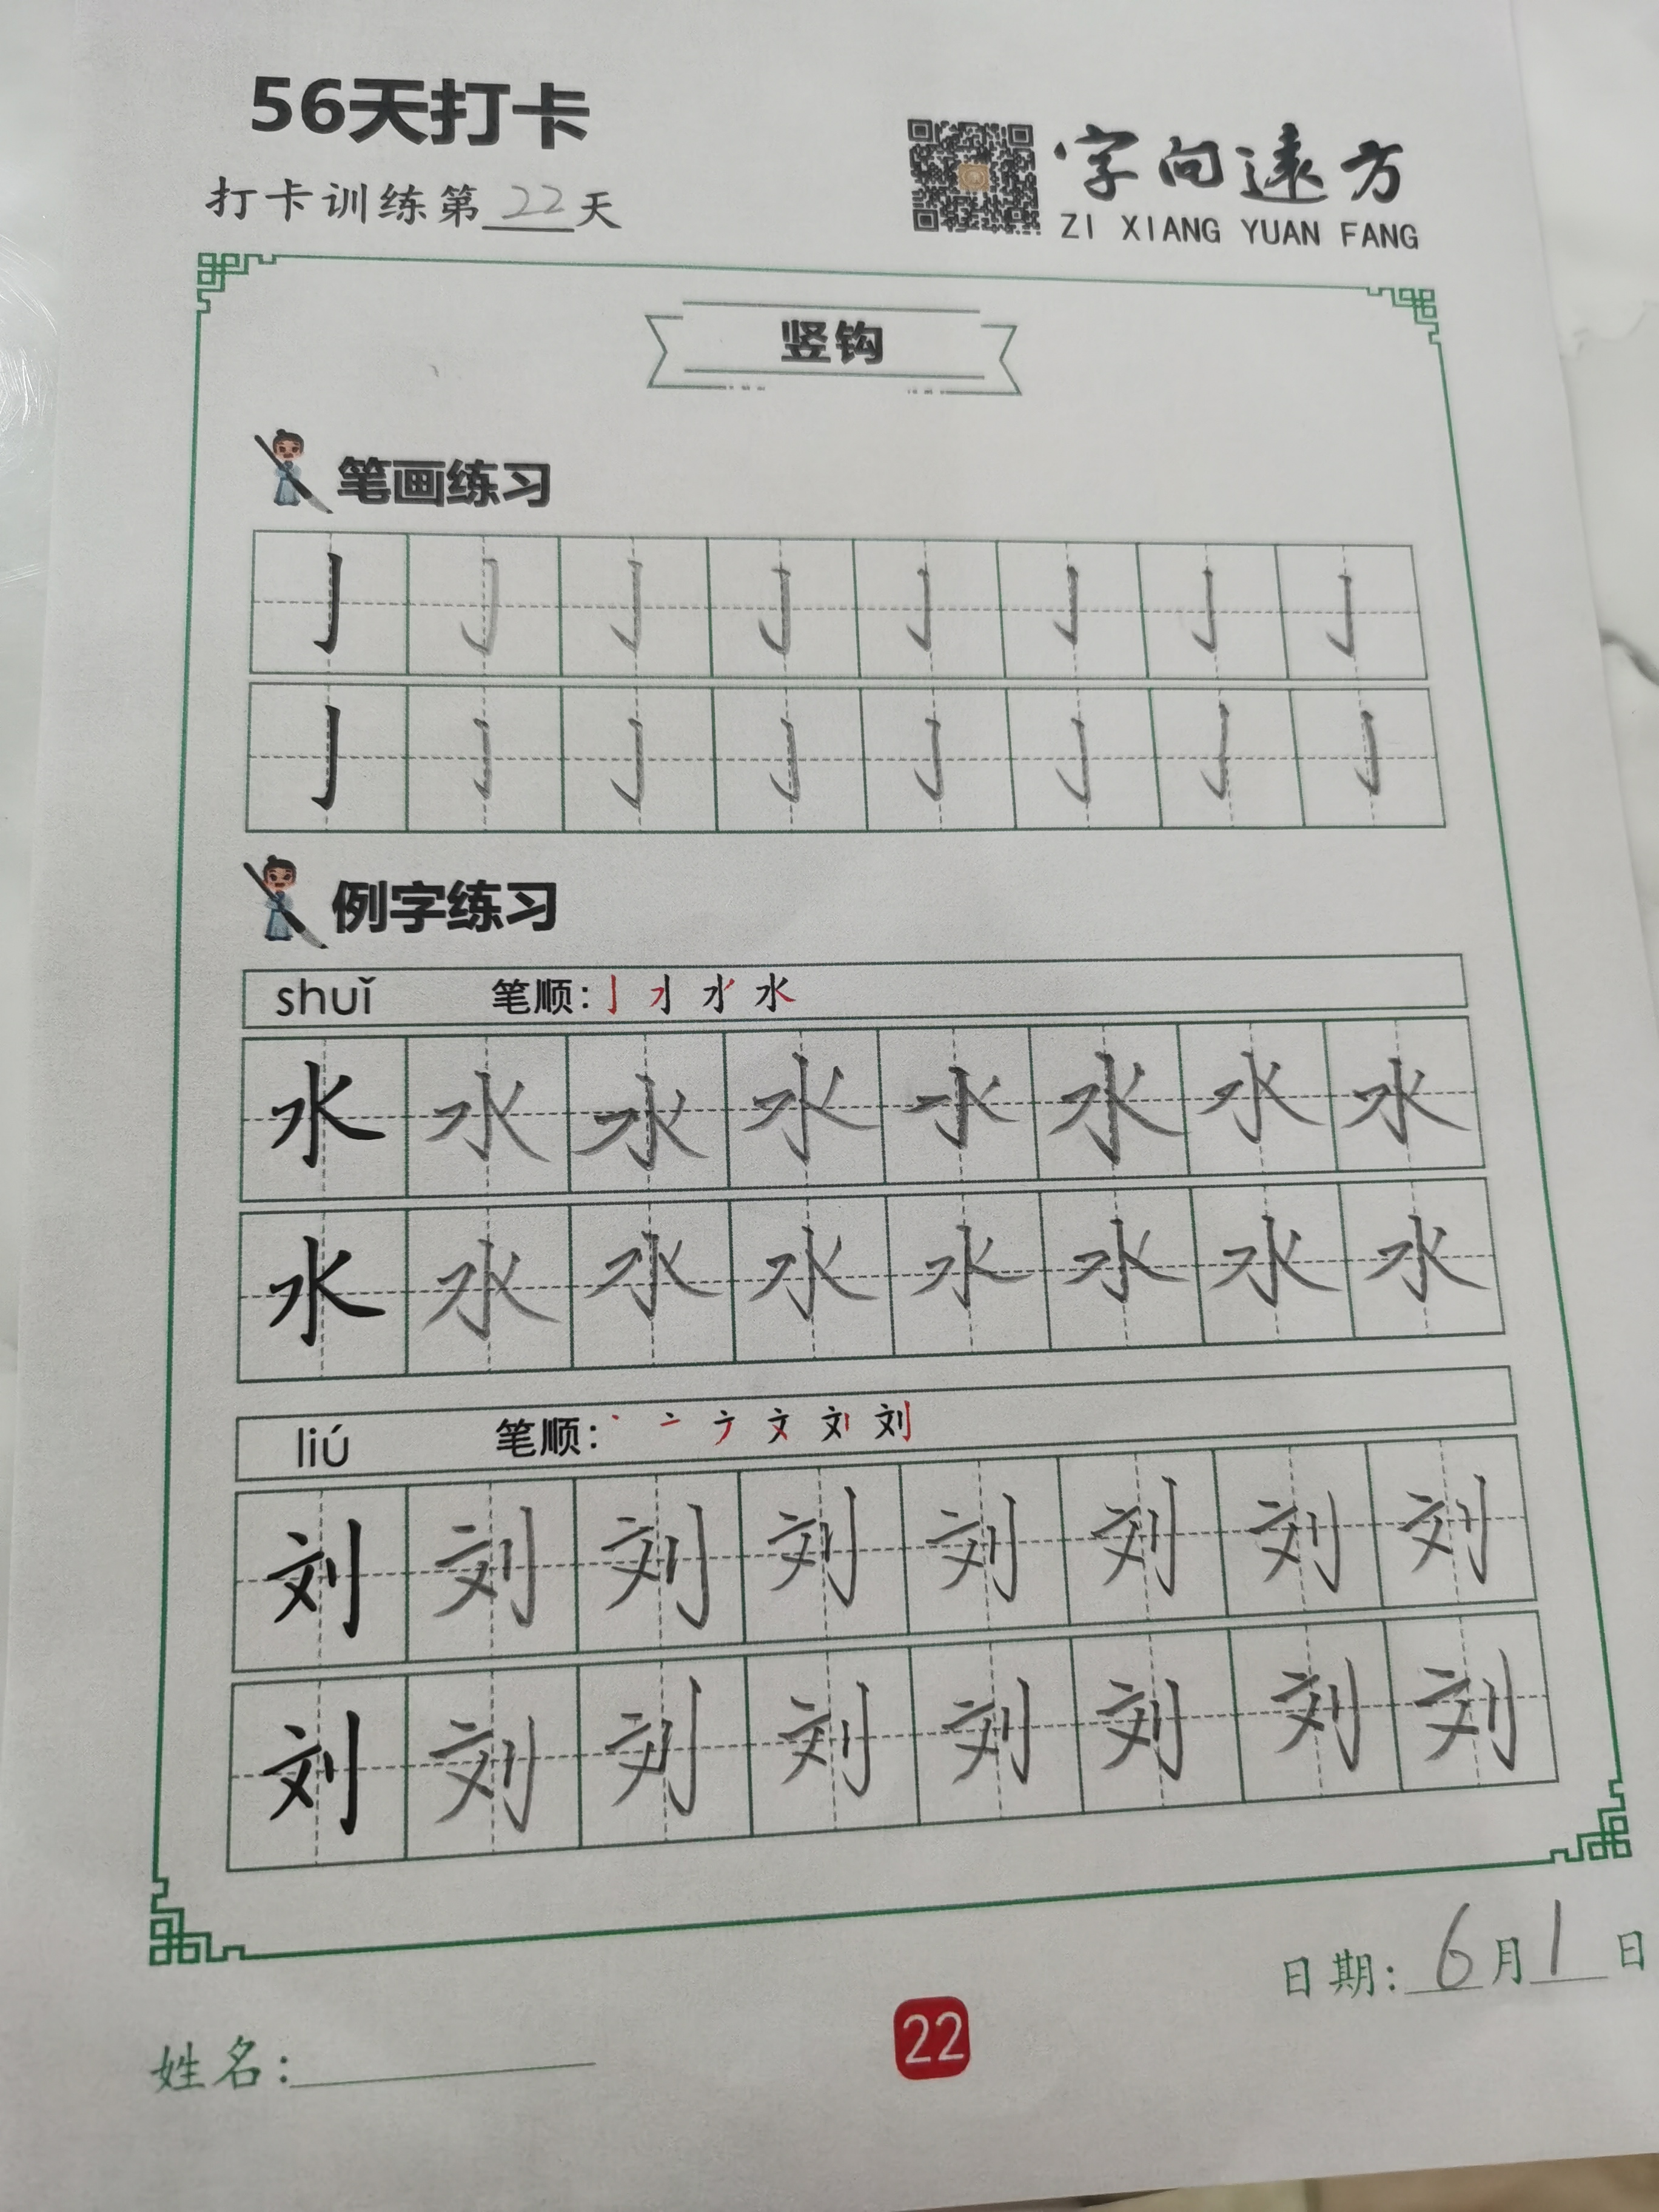 56天打卡
打卡训练第22天
字向遠方
ZI XIANG YUAN FANG
竖钩
笔画练习
亅 亅 亅 亅 亅 亅 亅 亅
亅 亅 亅 亅 亅 亅 亅 亅
例字练习
shuǐ 笔顺：
水 水 水 水 水 水 水 水
水 水 水 水 水 水 水 水
liú 笔顺：
刘 刘 刘 刘 刘 刘 刘 刘
刘 刘 刘 刘 刘 刘 刘 刘
日期：6月1日
22
姓名：